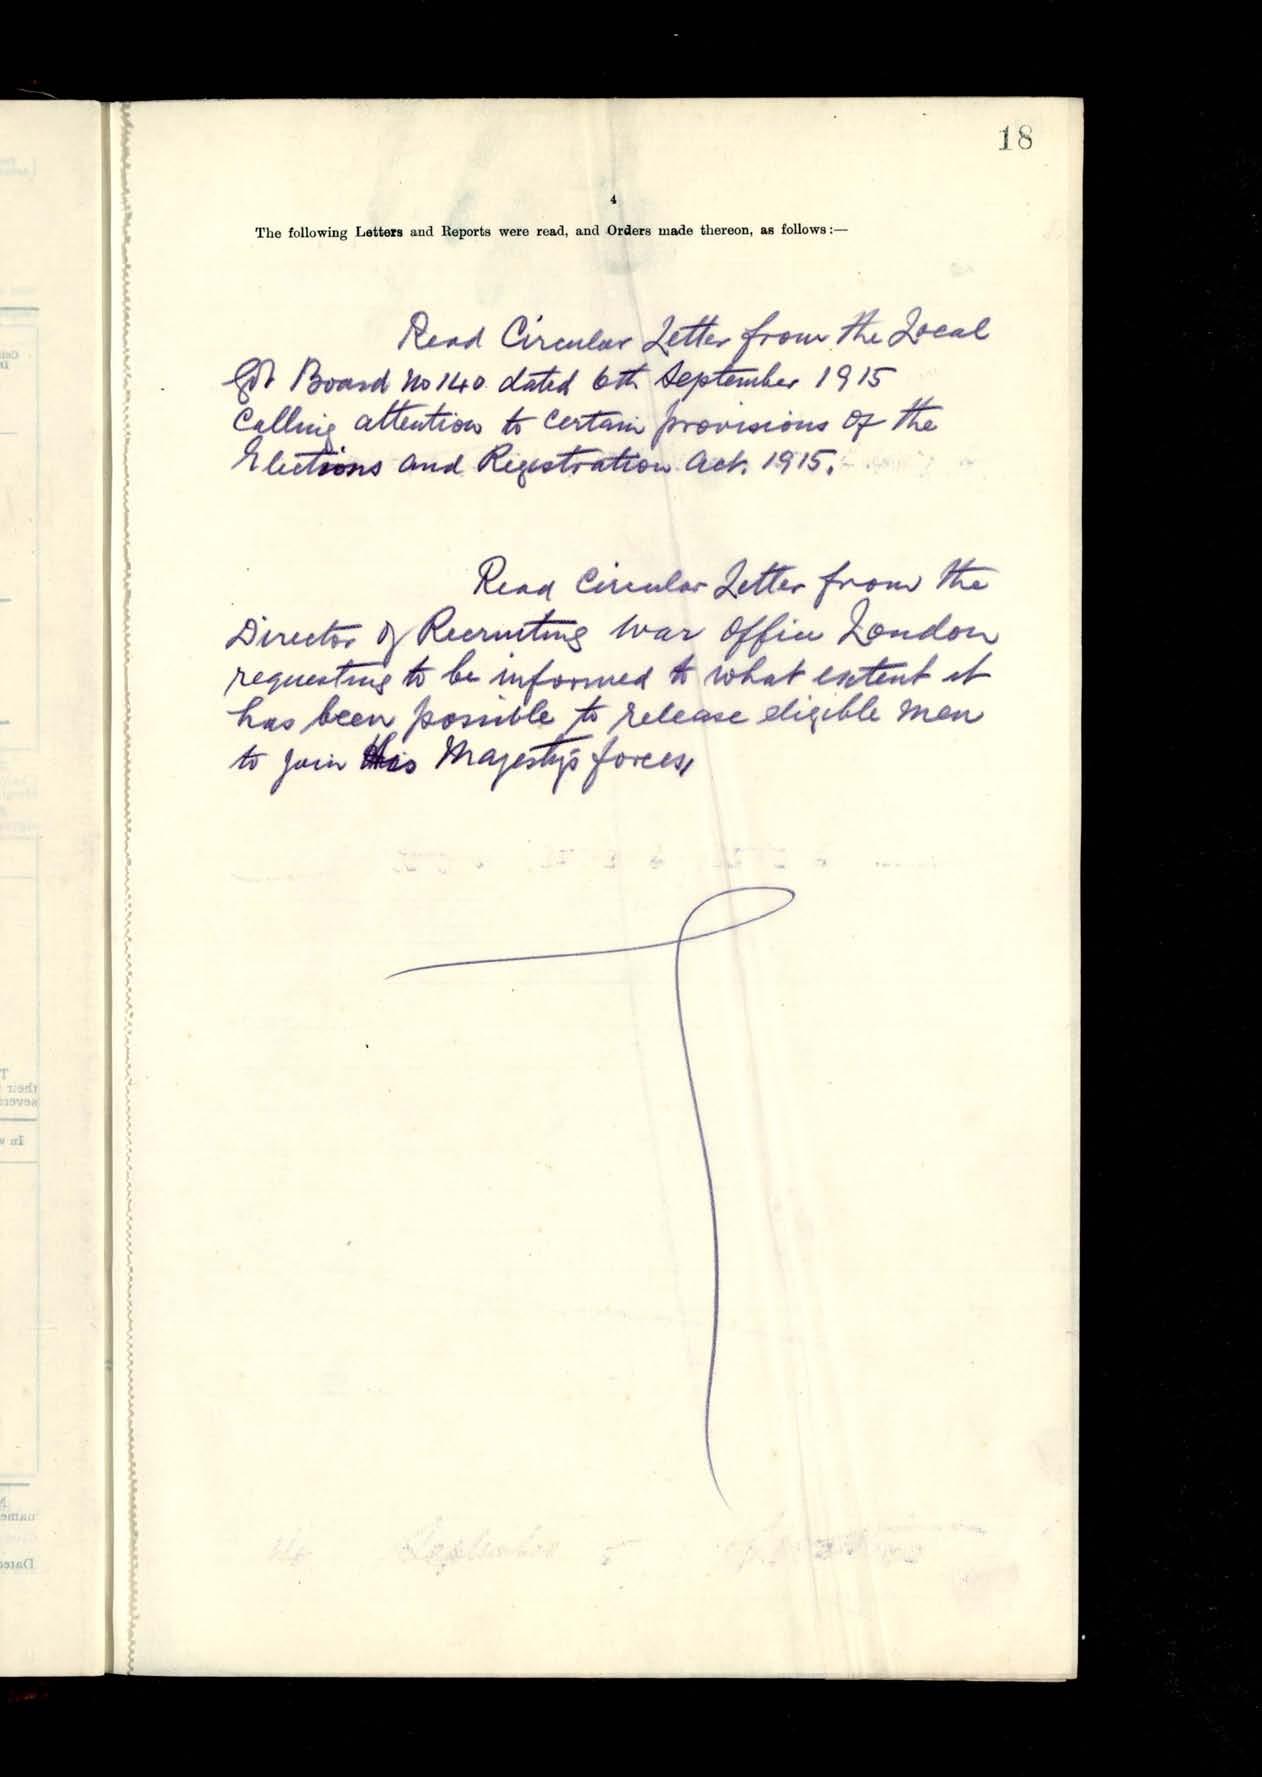 18
4
The following Letters and Reports were read, and Orders made thereon, as follows:—
Read Circular Letter from the Local
Govt Board No 140. dated 6th September 1915
Calling attention to certain provisions of the
Elections and Registration Act. 1915.
Read Circular Letter from the
Director of Recruiting War Office London
requesting to be informed to what extent it
has been possible to release eligible men
to join His Majesty's forces,